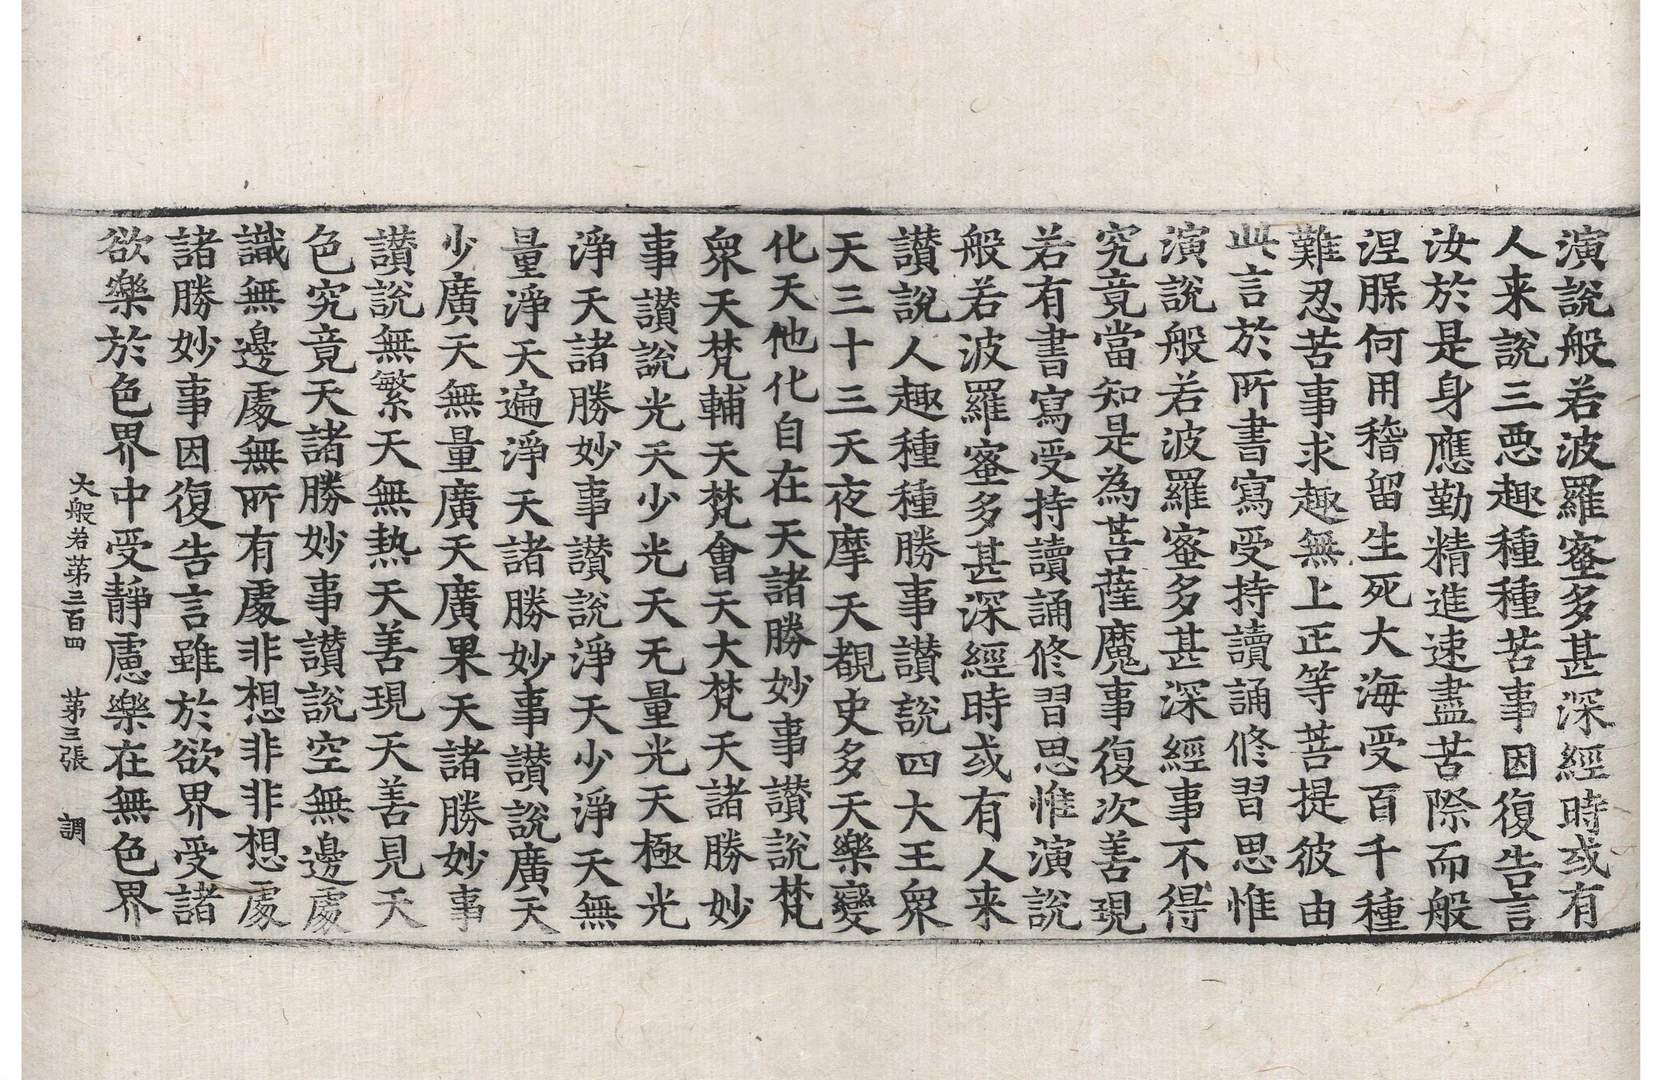 演說般若波羅蜜多甚深經時或有
人来說三惡趣種種苦事因復告言
汝於是身應勤精進速盡苦際而般
涅槃何用稽留生死大海受百千種
難忍苦事求趣無上正等菩提彼由
此言於所書寫受持讀誦修習思惟
演說般若波羅蜜多甚深經事不得
究竟當知是為菩薩魔事復次善現
若有書寫受持讀誦修習思惟演說
般若波羅蜜多甚深經時或有人来
讃說人趣種種勝事讃說四大王衆
天三十三天夜摩天覩史多天樂變
化天他化自在天諸勝妙事讃說梵
衆天梵輔天梵會天大梵天諸勝妙
事讃說光天少光天无量光天極光
淨天諸勝妙事讃說淨天少淨天無
量淨天遍淨天諸勝妙事讃說廣天
少廣天無量廣天廣果天諸勝妙事
讃說無繁天無熱天善現天善見天
色究竟天諸勝妙事讃說空無邊處
識無邊處無所有處非想非非想處
諸勝妙事因復告言雖於欲界受諸
欲樂於色界中受靜慮樂在無色界
大般若第三百四 第三張 調